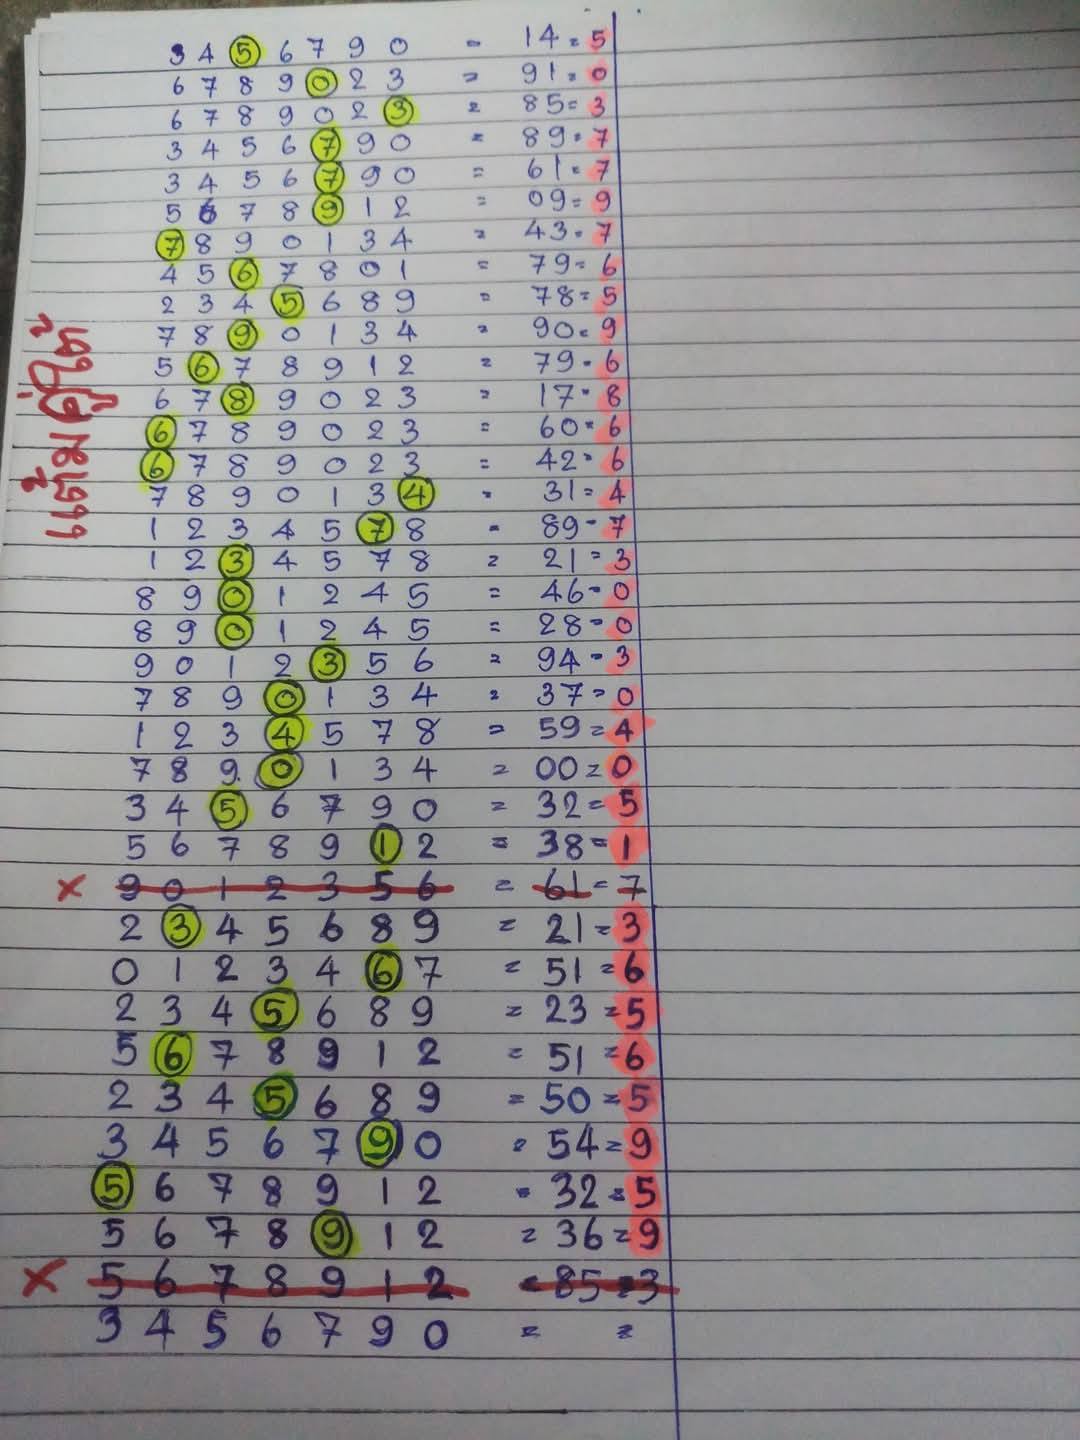 3 4 5 6 7 9 0 = 14 = 5
6 7 8 9 0 2 3 = 91 = 0
6 7 8 9 0 2 3 = 85 = 3
3 4 5 6 7 9 0 = 89 = 7
3 4 5 6 7 9 0 = 61 = 7
5 6 7 8 9 1 2 = 09 = 9
7 8 9 0 1 3 4 = 43 = 7
4 5 6 7 8 0 1 = 79 = 6
2 3 4 5 6 8 9 = 78 = 5
7 8 9 0 1 3 4 = 90 = 9
5 6 7 8 9 1 2 = 79 = 6
6 7 8 9 0 2 3 = 17 = 8
6 7 8 9 0 2 3 = 60 = 6
6 7 8 9 0 2 3 = 42 = 6
7 8 9 0 1 3 4 = 31 = 4
1 2 3 4 5 7 8 = 89 = 7
1 2 3 4 5 7 8 = 21 = 3
8 9 0 1 2 4 5 = 46 = 0
8 9 0 1 2 4 5 = 28 = 0
9 0 1 2 3 5 6 = 94 = 3
7 8 9 0 1 3 4 = 37 = 0
1 2 3 4 5 7 8 = 59 = 4
7 8 9 0 1 3 4 = 00 = 0
3 4 5 6 7 9 0 = 32 = 5
5 6 7 8 9 1 2 = 38 = 1
x 9 0 1 2 3 5 6 = 61 = 7
2 3 4 5 6 8 9 = 21 = 3
0 1 2 3 4 6 7 = 51 = 6
2 3 4 5 6 8 9 = 23 = 5
5 6 7 8 9 1 2 = 51 = 6
2 3 4 5 6 8 9 = 50 = 5
3 4 5 6 7 9 0 = 54 = 9
5 6 7 8 9 1 2 = 32 = 5
5 6 7 8 9 1 2 = 36 = 9
x 5 6 7 8 9 1 2 = 85 = 3
3 4 5 6 7 9 0 = =